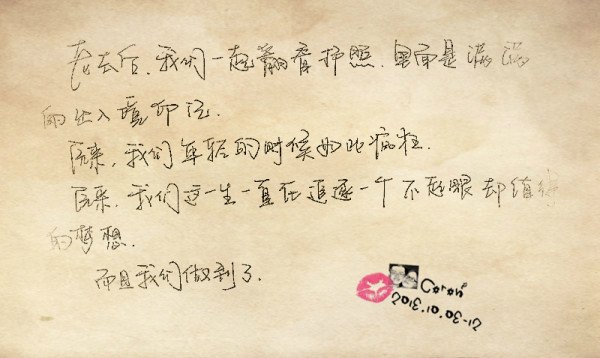 老去后,我们一起翻看护照.里面是满满
的出入境印记.
原来,我们年轻的时候如此疯狂.
原来,我们这一生一直在追逐一个不起眼却值得
的梦想.
而且我们做到了.
Coron